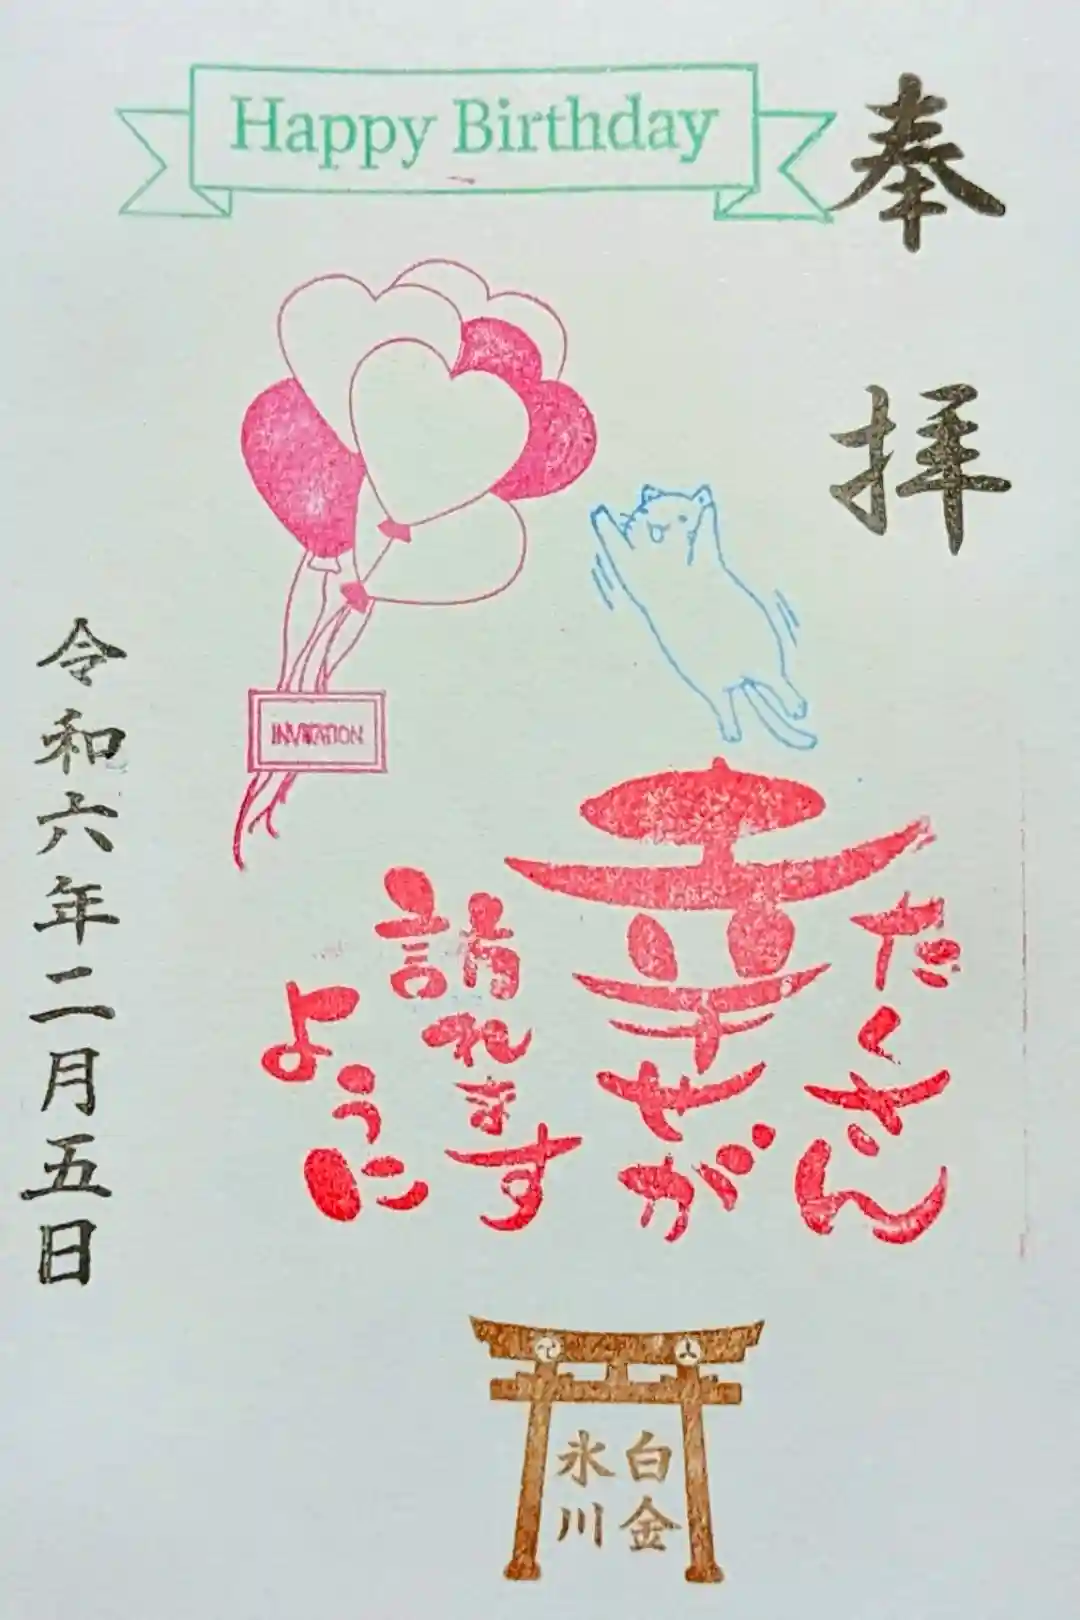 Happy Birthday
奉拝
INVITATION
たくさん
幸せが
訪れます
ように
令和六年二月五日
白金
氷川